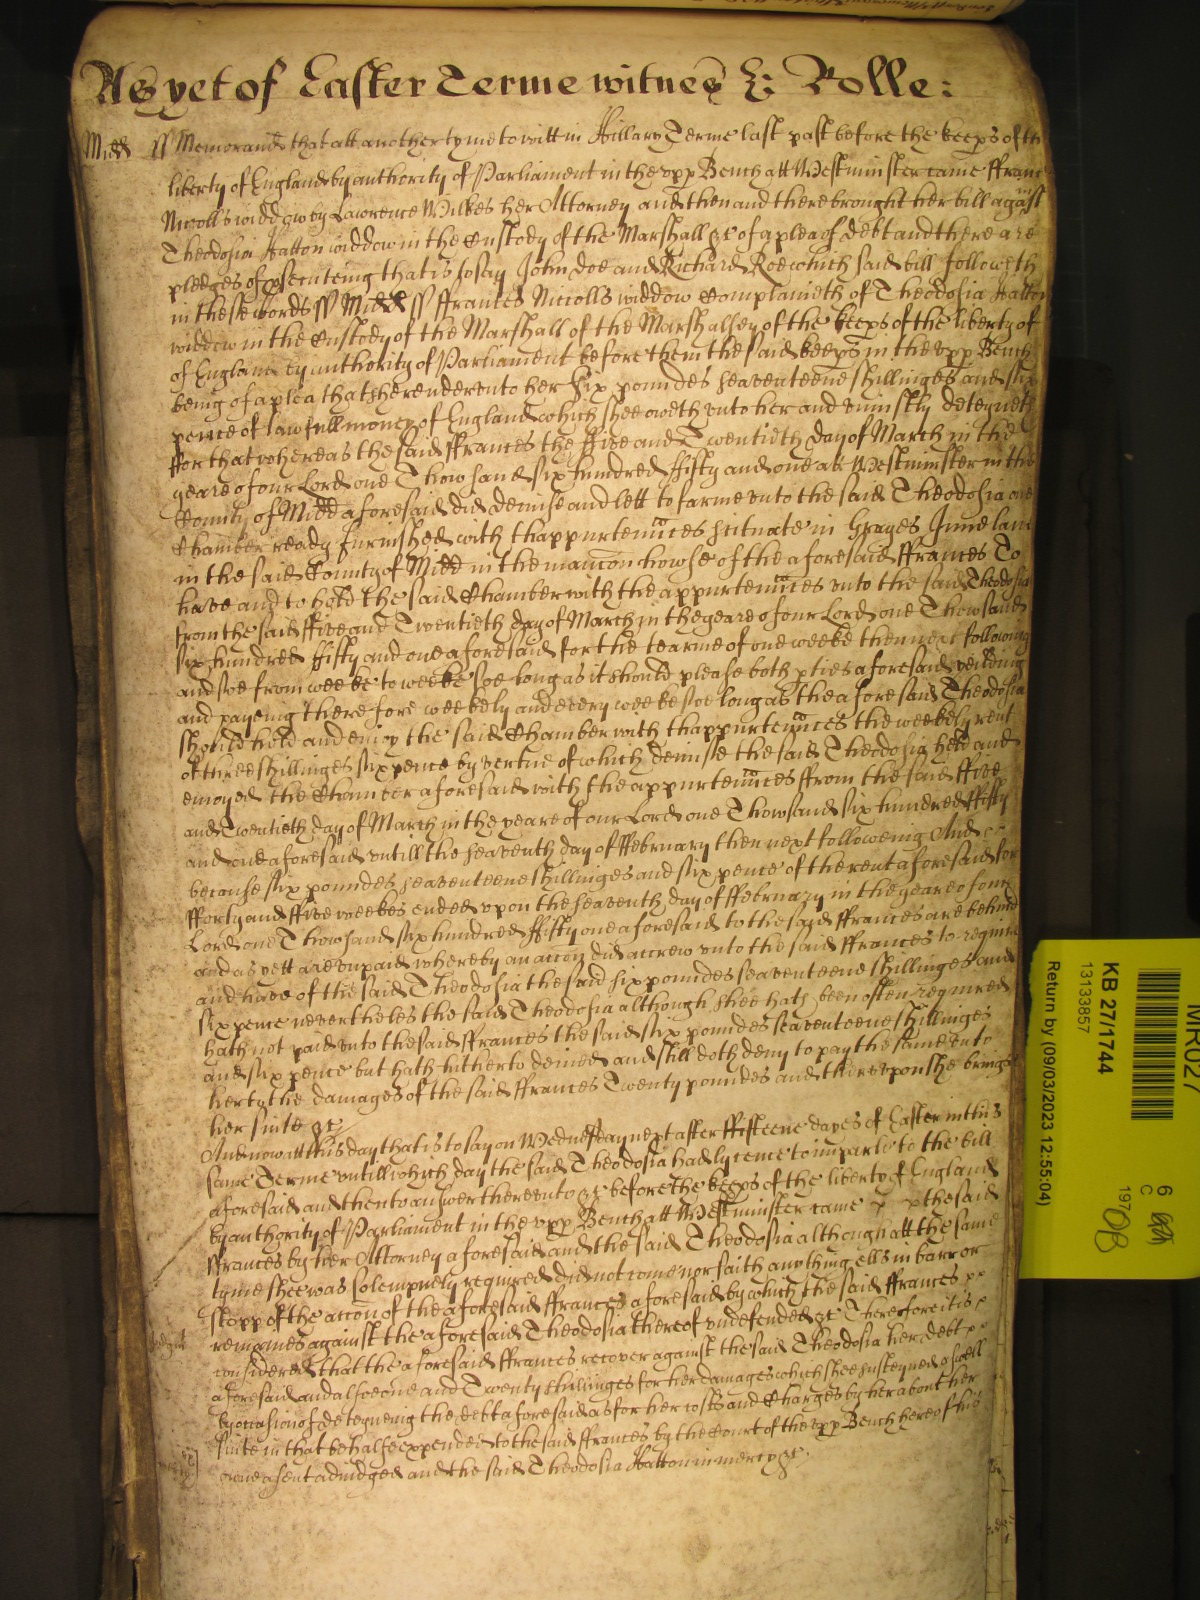 As yet of Easter Terme witnes H: Rolle:
Midd ss Memorand that att another tyme to witt in Hillary Terme last past before the keeps of th
liberty of England by authority of Parliament in the vpp Bench att Westminster came ffranc
Nicolls widdow by Lawrence Wilkes her Attorney and then and there brought her bill agaist
Theodosia Hatton widdow in the Custody of the Marshall &c of a plea of debt and there are
pledges of psecuteing that is to say John Doe and Richard Roe which said bill followeth
in these words ss Midd ss ffrances Niccolls widdow Complaineth of Theodosia Hatton
widdow in the Custody of the Marshall of the Marshalsey of the keeps of the liberty of
of England by authority of Parliament before them the said keeps in the vpp Bench
being of a plea that shee render vnto her six poundes seaventeene shillinges and six
pence of lawfull money of England which shee oweth vnto her and vniustly deteyneth
ffor that whereas the said ffrances the ffive and Twentieth day of March in the
yeare of our Lord one Thowsand six hundred ffifty and one att Westminster in the
County of Midd aforesaid did demise and lett to farme vnto the said Theodosia one
Chamber ready furnished with thappurtennces scituate in Grayes Inne lane
in the said County of Midd in the mancon howse of the aforesaid ffrances To
have and to hold the said Chamber with the appurtennces vnto the said Theodosia
from the said ffive and Twentieth day of March in the yeare of our Lord one Thowsand
six hundred ffifty and one aforesaid for the tearme of one weeke then next following
and soe from weeke to weeke soe long as it should please both pties aforesaid yeilding
and payeing therefore weekely and every weeke soe long as the aforesaid Theodosia
should hold and enioy the said Chamber with thappurtennces the weekely rent
of three shillinges six pence by vertue of which demise the said Theodosia held and
enioyed the Chamber aforesaid with the appurtennces ffrom the said ffive
and Twentieth day of March in the yeare of our Lord one Thowsand six hundred ffifty
and one aforesaid vntill the seaventh day of ffebruary then next followeing And
because six poundes seaventeene shillinges and six pence of the rent aforesaid for
fforty and ffive weekes ended vpon the seaventh day of ffebruary in the yeare of our
Lord one Thowsand six hundred ffifty one aforesaid to the said ffrances are behind
and as yett are vnpaid whereby an accon did accrew vnto the said ffrances to require
and have of the said Theodosia the said six poundes seaventeene shillinges and
six pence neverthelesˢ the said Theodosia although shee hath been often required
hath not paid vnto the said ffrances the said six poundes seaventeene shillinges
and six pence but hath hitherto denied and still doth deny to pay the same vnto
her to the damages of the said ffrances Twenty poundes and therevpon she bringe
her suite &c
And now att this day that is to say on Wednesday next after ffifteene dayes of Easter in this
same Terme vntill which day the said Theodosia had lycence to imparle to the bill
aforesaid and then to answer therevnto &c before the keeps of the liberty of England
by authority of Parliament in the vpp Bench att Westminster came the said
ffrances by her Attorney aforesaid and the said Theodosia although att the same
tyme shee was solempnely required did not come nor saith anything ells in barr or
stopp of the accon of the aforesaid ffrances aforesaid by which the said ffrances
remaines against the aforesaid Theodosia thereof vndefended &c Therefore it is
considered that the aforesaid ffrances recover against the said Theodosia her debt
aforesaid and alsoe one and Twenty shillinges for her damages which shee susteyned aswell
by occasion of deteyneing the debt aforesaid as for her costs and Charges by her about her
suite in that behalfe expended to the said ffrances by the Court of the vpp Bench here of his
owne assent adiudged and the said Theodosia Hatton in mercy &c
MR027
KB 27/1744
13133857
Return by (09/03/2023 12:55:04)
6
C
197